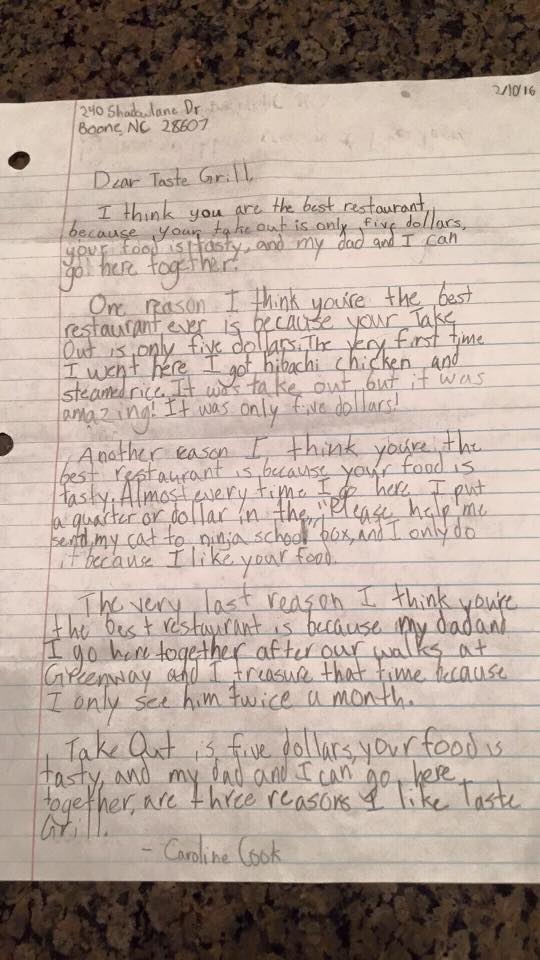 2/10/16
240 Shadowlane Dr
Boone, NC 28607
Dear Taste Grill,
I think you are the best restaurant,
because, your take out is only five dollars,
your food is tasty, and my dad and I can
go here together!
One reason I think you're the best
restaurant ever is because your Take
Out is only five dollars. The very first time
I went here I got hibachi chicken and
steamed rice. It was take out but it was
amazing! It was only five dollars!
Another reason I think you're the
best restaurant is because your food is
tasty. Almost every time I go here I put
a quarter or dollar in the, "Please help me
send my cat to ninja school box, and I only do
it because I like your food.
The very last reason I think you're
the best restaurant is because my dad and
I go here together after our walks at
Greenway and I treasure that time because
I only see him twice a month.
Take Out is five dollars, your food is
tasty, and my dad and I can go here
together, are three reasons I like Taste
Grill.
- Caroline Cook